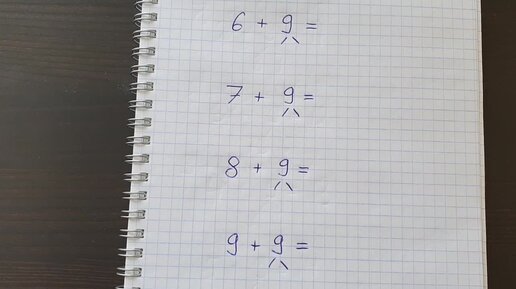 6 + 9 =
7 + 9 =
8 + 9 =
9 + 9 =